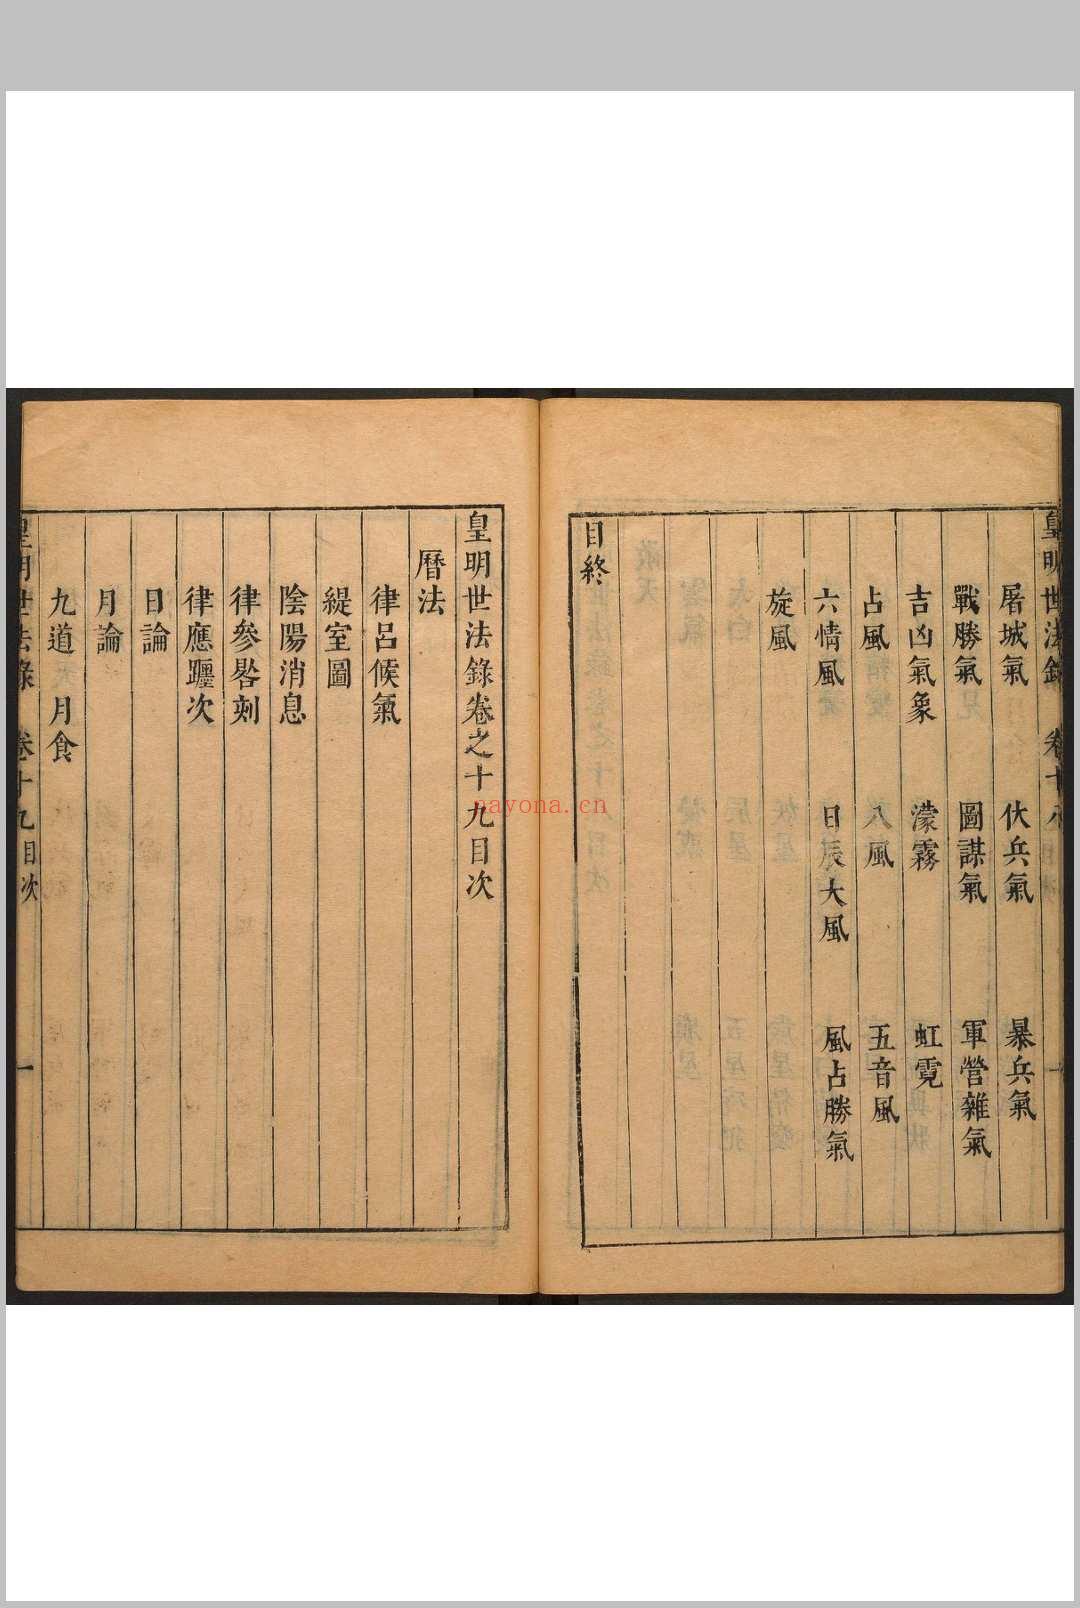 皇明世法錄 卷十八
屠城氣 伏兵氣 暴兵氣
戰勝氣 圖謀氣 軍營雜氣
吉凶氣象 濛霧 虹霓
占風 八風 五音風
六情風 日辰大風 風占勝氣
旋風
目終
皇明世法錄卷之十九目次
曆法
律呂候氣
緹室圖
陰陽消息
律參晷刻
律應躔次
日論
月論
九道 月食
皇明世法錄 卷十九目次 一
nayona.cn